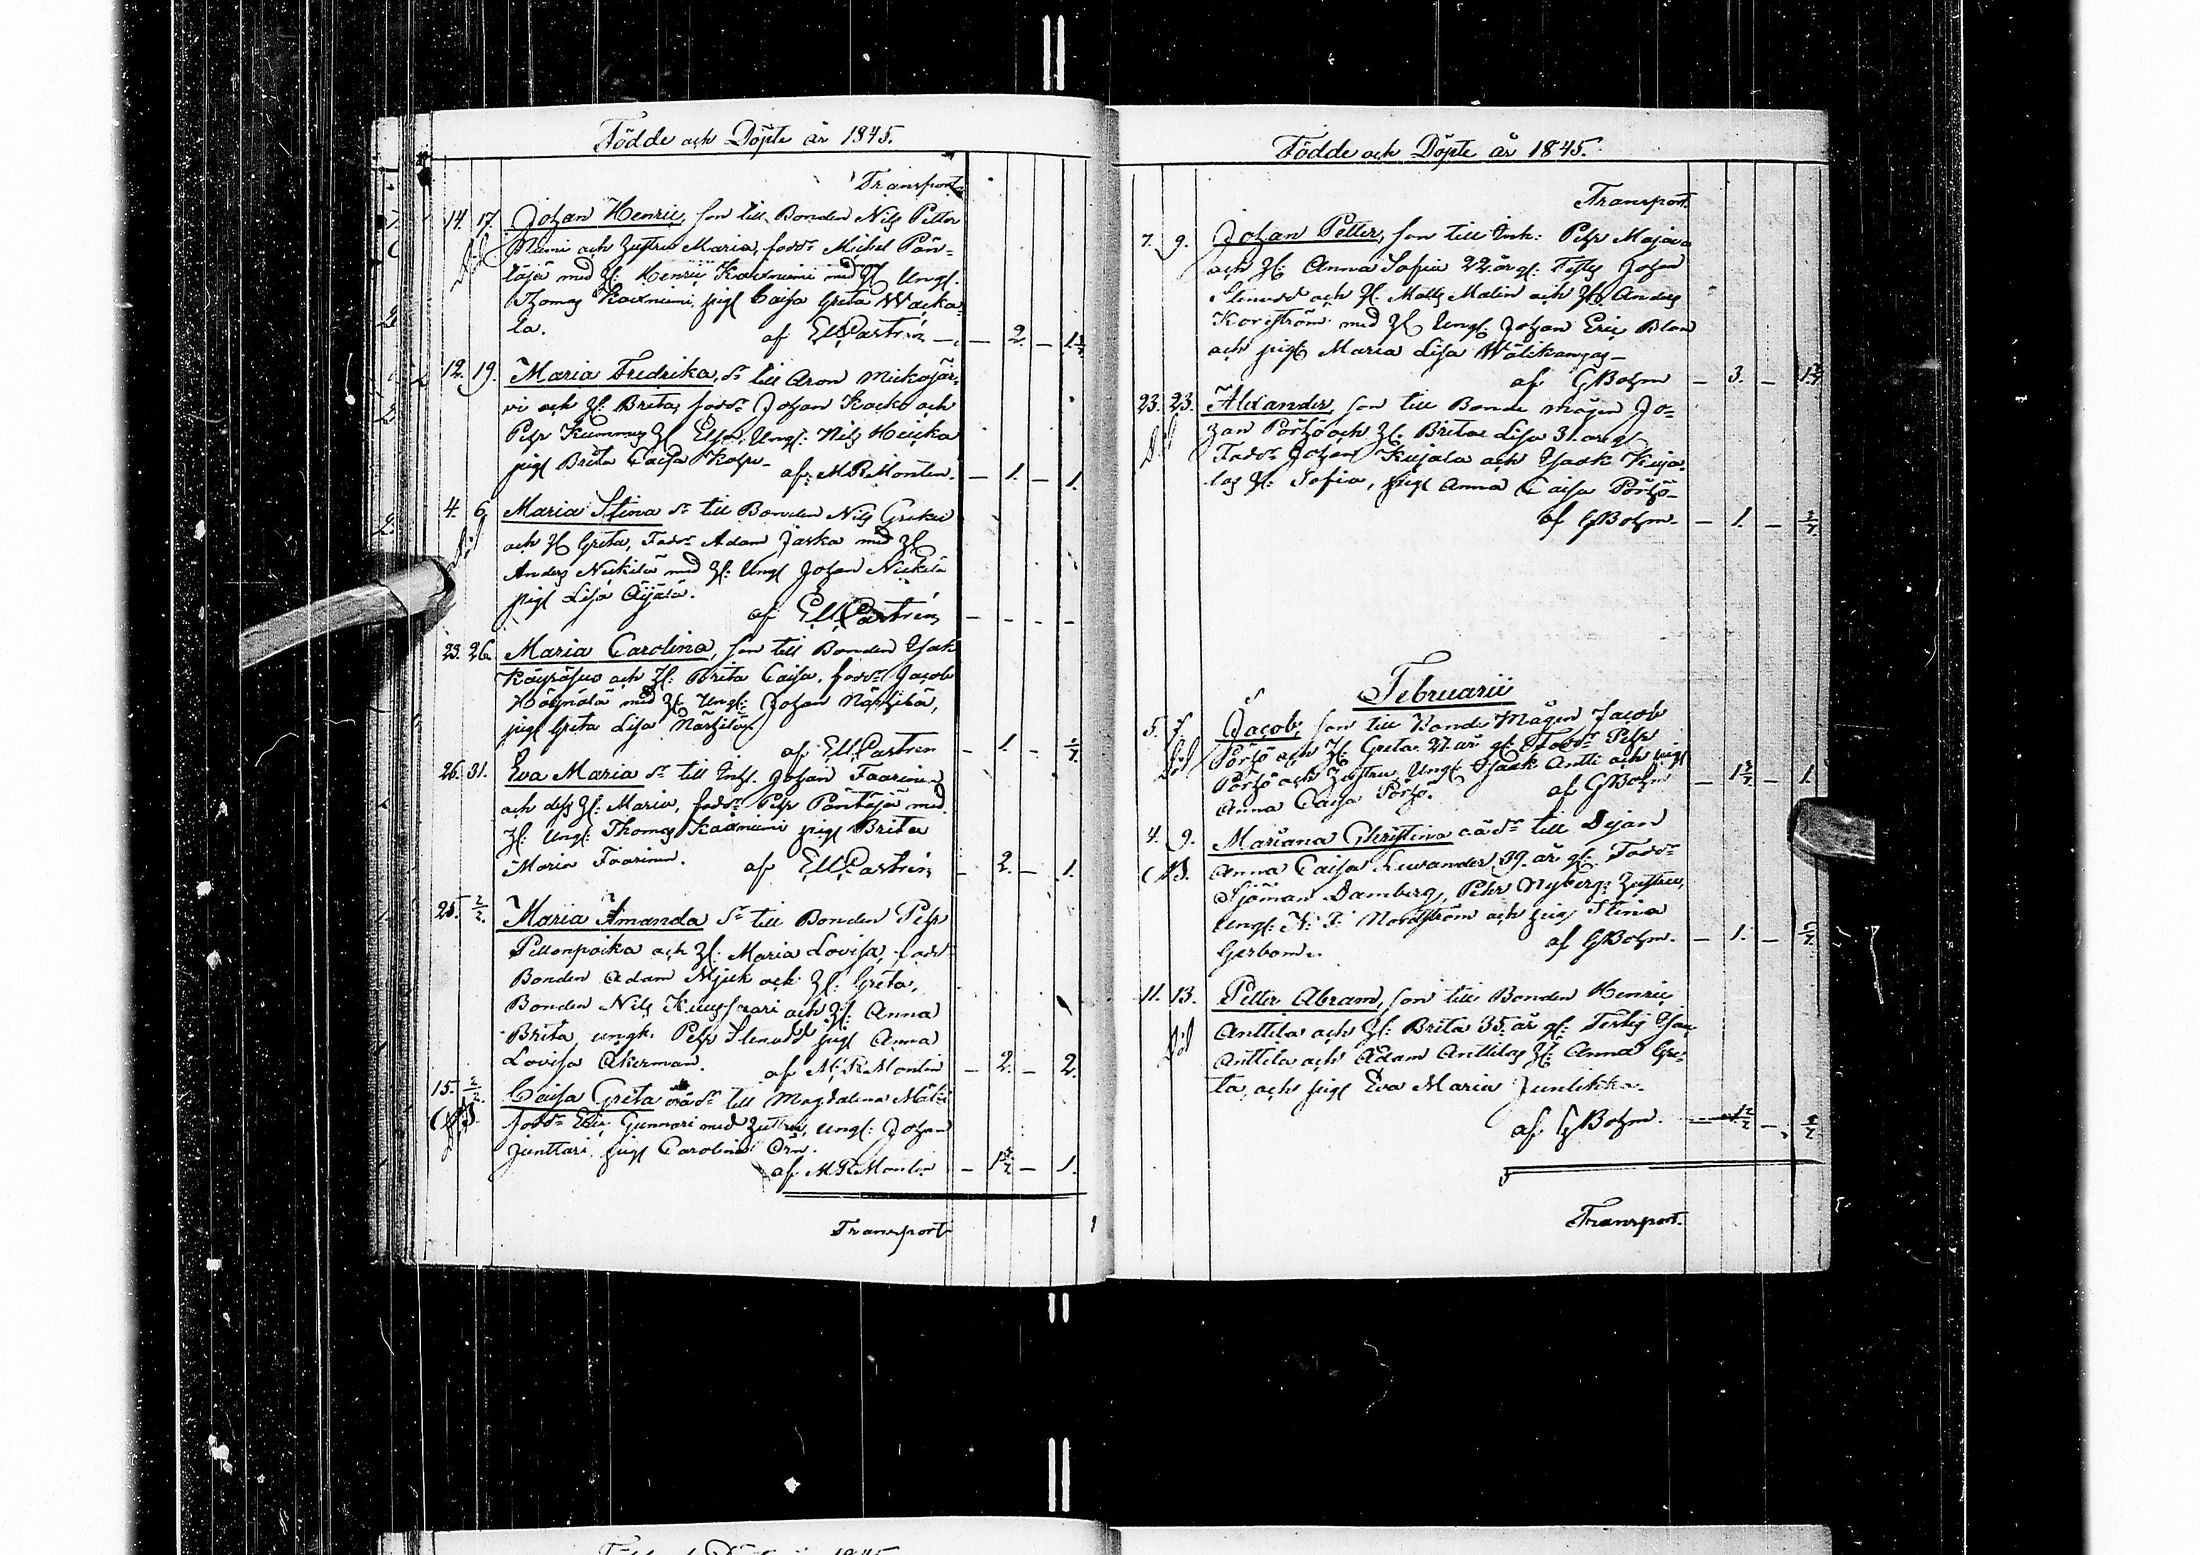 Födde och Döpte år 1845.
Transport
14. 17. Johan Henric, son till Bonden Nils Petter
Niemi och hustru Maria, fadd: Michel Pön-
täjä med H: Henric Kaxniemi med H: Ungk.
Thomas Kaxniemi, pig: Caisa Greta Wacka-
la. af E M Castrén — 2. —
12. 19. Maria Fredrika, dr till Aron Mickojär-
vi och H: Brita, fadd: Johan Kacko och
Pehr Kummus H: Elsa, Ungk: Nils Heicka
pig: Brita Caisa
af M R Montin. — 1. — 1.
4. 6. Maria Stina dr till Bonden Nils
och H: Greta, Fadd: Adam Jaska med H:
Anders Nickilä med H: Ungk: Johan Nickilä
pig: Lisa Äijälä.
af E M Castrén — - - -
23. 26. Maria Carolina, son till Bonden Isak
Käyräsuo och H: Brita Caisa, fadd: Jacob
med H: Ungk: Johan Närhilä,
pig: Greta Lisa Närhilä
af E M Castrén — 1. —
26. 31. Eva Maria dr till Inh: Johan Taarinen
och dess H: Maria, fadd: Pehr Pöntäjä med
H: Ungk: Thomas Kaxniemi pig: Brita
Maria Taarinen. af E M Castrén — 2. — 1.
25. 2/2. Maria Amanda dr till Bonden Pehr
Pillonpoika och H: Maria Lovisa, fadd
Bonden Adam Mjuk och H: Greta,
Bonden Nils Kuussaari och H: Anna
Brita, ungk: Pehr Stenudd pig: Anna
Lovisa Åkerman. af M: R Montin — 2. — 2.
15. 2/2. Caisa Greta oä dr till Magdalena Mäki
fadd: Eric Gunnari med hustru, ungk: Johan
Junttari, pig: Carolina Örn.
af M R Montin — — 1.
Transport
Födde och Döpte år 1845.
Transport.
7. 9. Johan Petter, son till Inh: Pehr Majava
och H: Anna Sofia 22 år gl: Test: Johan
Stenudd och H: Matts Malin och H: Anders
Korström med H: Ungk: Johan Eric Blom
och pig: Maria Lisa Wälikangas—
af G Bohm — 3. —
23. 23. Alexander, son till Bonde mågen Jo-
han Pörhö och H: Brita Lisa 31 år gl
Fadd: Johan Kujala och Isaak Kuja-
las H: Sofia, pig: Anna Caisa Pörhö—
af G Bohm. — 1. —
Februarii
5. 7. Jacob, son till Bonde Mågen Jacob
Död Pörhö och H: Greta 27 år gl: Fadd: Pehr
Pörhö och hustru, Ungk: Isaak Antti och pig:
Anna Caisa Pörhö. af G Bohm — — 1.
4. 9. Mariana Christina oä dr till Dejan
Anna Caisa 39 år gl: Fadd:
Sjöman Damberg, Pehr Nybergs hustru,
Ungk: N: J: Nordström och pig: Stina
Garbom. af G Bohm. — 1. —
11. 13. Petter Abram, son till Bonden Henric
Död Anttila och H: Brita 35 år gl: Testes
Anttila och Adam Anttilas H: Anna Gre-
ta, och pig: Eva Maria Juntikka.
af G Bohm.
Transport.